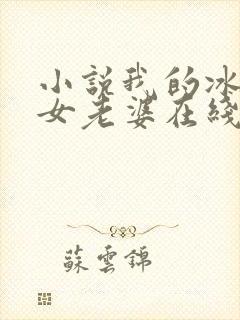 小説我的冰
女老婆在綫
蘇雲錦